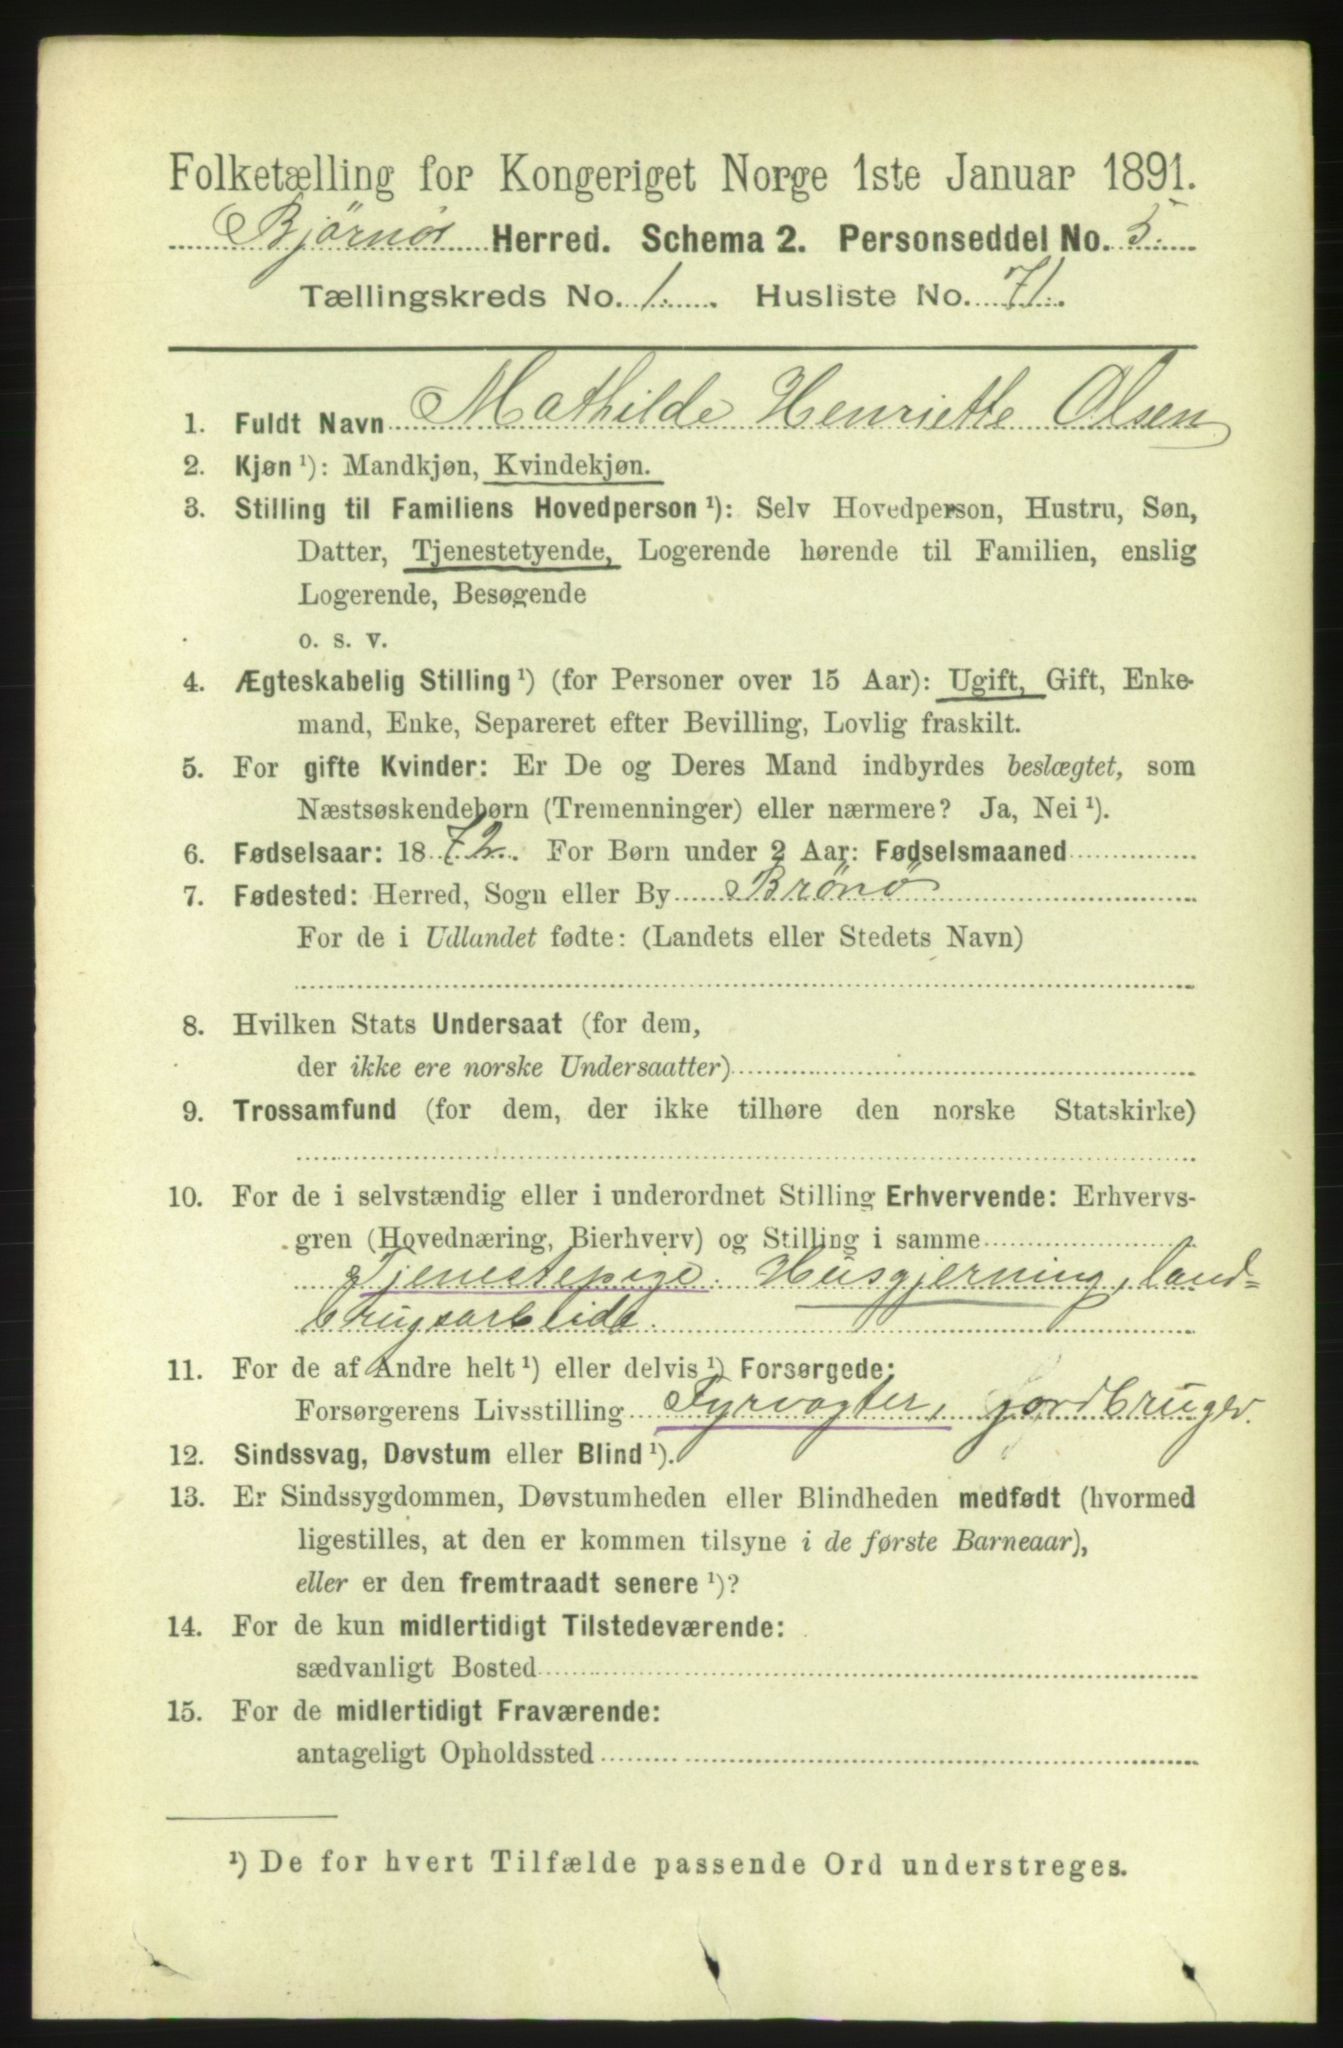 Folketælling for Kongeriget Norge 1ste Januar 1891.
Bjørnør Herred. Schema 2. Personseddel No. 5.
Tællingskreds No. 1. Husliste No. 71.
1. Fuldt Navn Mathilde Henriette Olsen
2. Kjøn ¹): Mandkjøn, Kvindekjøn.
3. Stilling til Familiens Hovedperson ¹): Selv Hovedperson, Hustru, Søn,
Datter, Tjenestetyende, Logerende hørende til Familien, enslig
Logerende, Besøgende
o. s. v.
4. Ægteskabelig Stilling ¹) (for Personer over 15 Aar): Ugift, Gift, Enke-
mand, Enke, Separeret efter Bevilling, Lovlig fraskilt.
5. For gifte Kvinder: Er De og Deres Mand indbyrdes beslægtet, som
Næstsøskendebørn (Tremenninger) eller nærmere? Ja, Nei ¹).
6. Fødselsaar: 1872. For Børn under 2 Aar: Fødselsmaaned
7. Fødested: Herred, Sogn eller By Brönö
For de i Udlandet fødte: (Landets eller Stedets Navn)
8. Hvilken Stats Undersaat (for dem,
der ikke ere norske Undersaatter)
9. Trossamfund (for dem, der ikke tilhøre den norske Statskirke)
10. For de i selvstændig eller i underordnet Stilling Erhvervende: Erhvervs-
gren (Hovednæring, Bierhverv) og Stilling i samme
Tjenestepige. Husgjerning, land=
brugsarbeide.
11. For de af Andre helt ¹) eller delvis ¹) Forsørgede:
Forsørgerens Livsstilling Fyrvogter, jordbruger.
12. Sindssvag, Døvstum eller Blind ¹).
13. Er Sindssygdommen, Døvstumheden eller Blindheden medfødt (hvormed
ligestilles, at den er kommen tilsyne i de første Barneaar),
eller er den fremtraadt senere ¹)?
14. For de kun midlertidigt Tilstedeværende:
sædvanligt Bosted
15. For de midlertidigt Fraværende:
antageligt Opholdssted
¹) De for hvert Tilfælde passende Ord understreges.